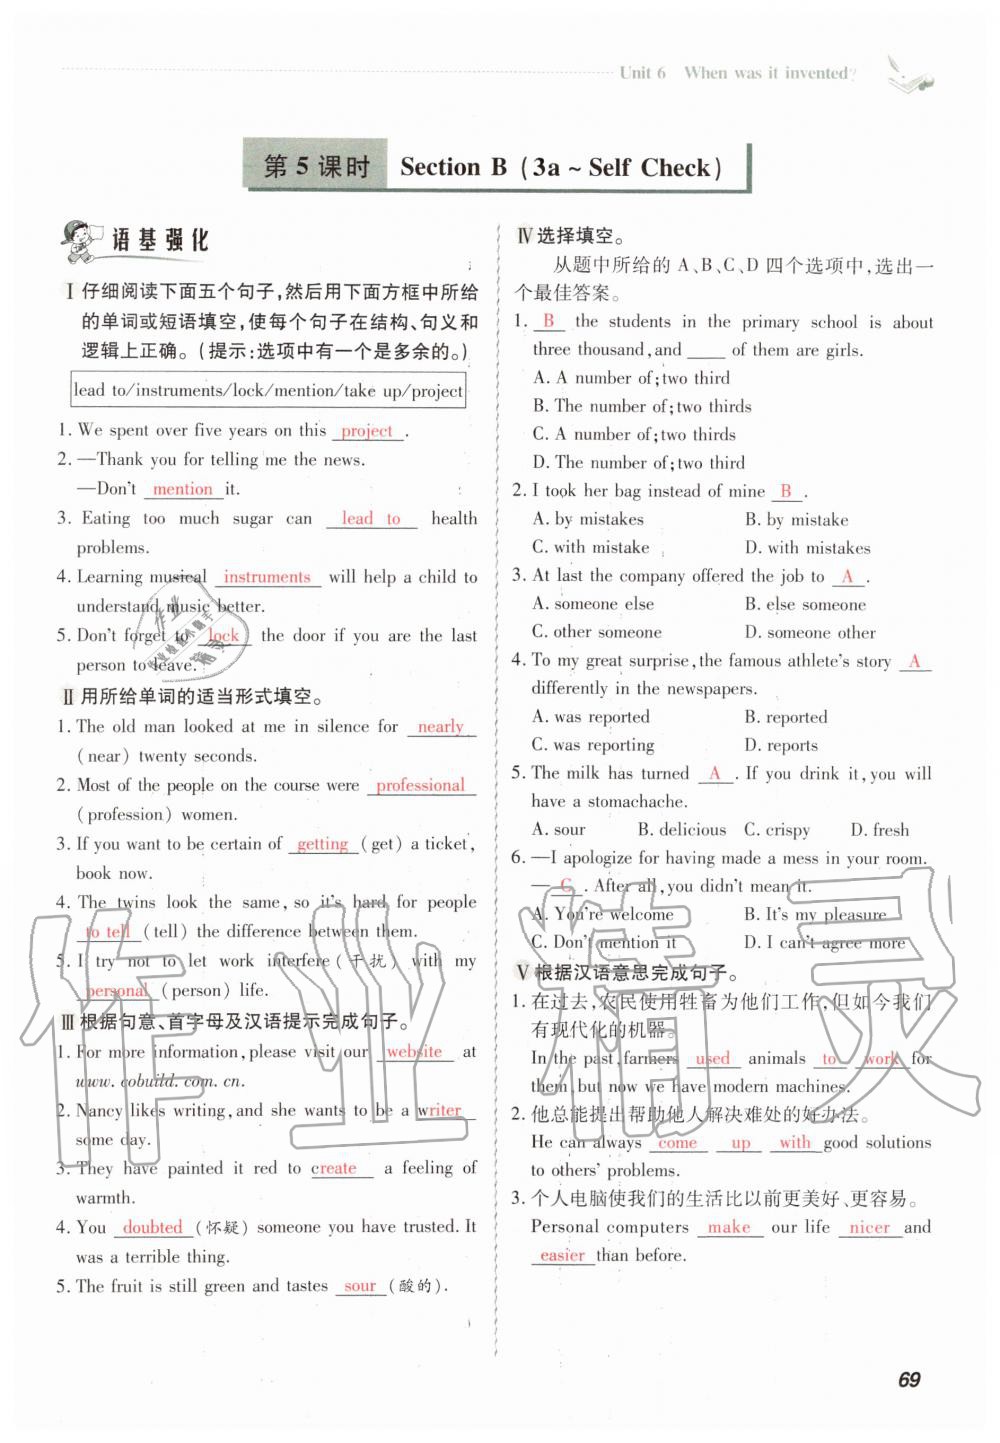 Unit 6 When was it invented?
第 5 课时 Section B (3a ~ Self Check)
语基强化
Ⅰ 仔细阅读下面五个句子,然后用下面方框中所给
的单词或短语填空,使每个句子在结构、句义和
逻辑上正确。(提示:选项中有一个是多余的。)
lead to/instruments/lock/mention/take up/project
1. We spent over five years on this project .
2. —Thank you for telling me the news.
—Don't mention it.
3. Eating too much sugar can lead to health
problems.
4. Learning musical instruments will help a child to
understand music better.
5. Don't forget to lock the door if you are the last
person to leave.
Ⅱ 用所给单词的适当形式填空。
1. The old man looked at me in silence for nearly
(near) twenty seconds.
2. Most of the people on the course were professional
(profession) women.
3. If you want to be certain of getting (get) a ticket,
book now.
4. The twins look the same, so it's hard for people
to tell (tell) the difference between them.
5. I try not to let work interfere(干扰) with my
personal (person) life.
Ⅲ 根据句意、首字母及汉语提示完成句子。
1. For more information, please visit our website at
www. cobuild. com. cn.
2. Nancy likes writing, and she wants to be a writer
some day.
3. They have painted it red to create a feeling of
warmth.
4. You doubted (怀疑) someone you have trusted. It
was a terrible thing.
5. The fruit is still green and tastes sour (酸的).
Ⅳ 选择填空。
从题中所给的 A、B、C、D 四个选项中,选出一
个最佳答案。
1. B the students in the primary school is about
three thousand, and ____ of them are girls.
A. A number of; two third
B. The number of; two thirds
C. A number of; two thirds
D. The number of; two third
2. I took her bag instead of mine B .
A. by mistakes B. by mistake
C. with mistake D. with mistakes
3. At last the company offered the job to A .
A. someone else B. else someone
C. other someone D. someone other
4. To my great surprise, the famous athlete's story A
differently in the newspapers.
A. was reported B. reported
C. was reporting D. reports
5. The milk has turned A . If you drink it, you will
have a stomachache.
A. sour B. delicious C. crispy D. fresh
6. —I apologize for having made a mess in your room.
— C . After all, you didn't mean it.
A. You're welcome B. It's my pleasure
C. Don't mention it D. I can't agree more
Ⅴ 根据汉语意思完成句子。
1. 在过去,农民使用牲畜为他们工作,但如今我们
有现代化的机器。
In the past, farmers used animals to work for
them, but now we have modern machines.
2. 他总能提出帮助他人解决难处的好办法。
He can always come up with good solutions
to others' problems.
3. 个人电脑使我们的生活比以前更美好、更容易。
Personal computers make our life nicer and
easier than before.
69
作业精灵